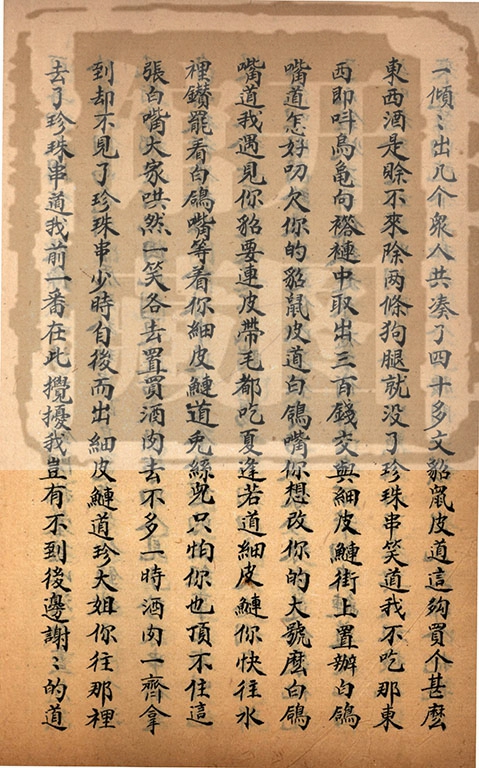 一傾〻出几个衆人共凑了四十多文貂鼠皮道這彀買个甚麽
東西酒是賒不來除两條狗腿就没了珍珠串笑道我不吃那東
西即呌烏龜向褡褳中取出三百錢交與細皮鰱街上置辦白鴿
嘴道怎好叨欠你的貂鼠皮道白鴿嘴你想改你的大號麽白鴿
嘴道我遇見你貂要連皮帶毛都吃夏逢若道細皮鰱你快往水
裡鑚罷看白鴿嘴等着你細皮鰱道兎絲兒只怕你也頂不住這
張白嘴大家哄然一笑各去置買酒肉去不多一時酒肉一齊拿
到却不見了珍珠串少時自後而出細皮鰱道珍大姐你往那裡
去了珍珠串道我前一番在此攪擾我豈有不到後邊謝〻的道